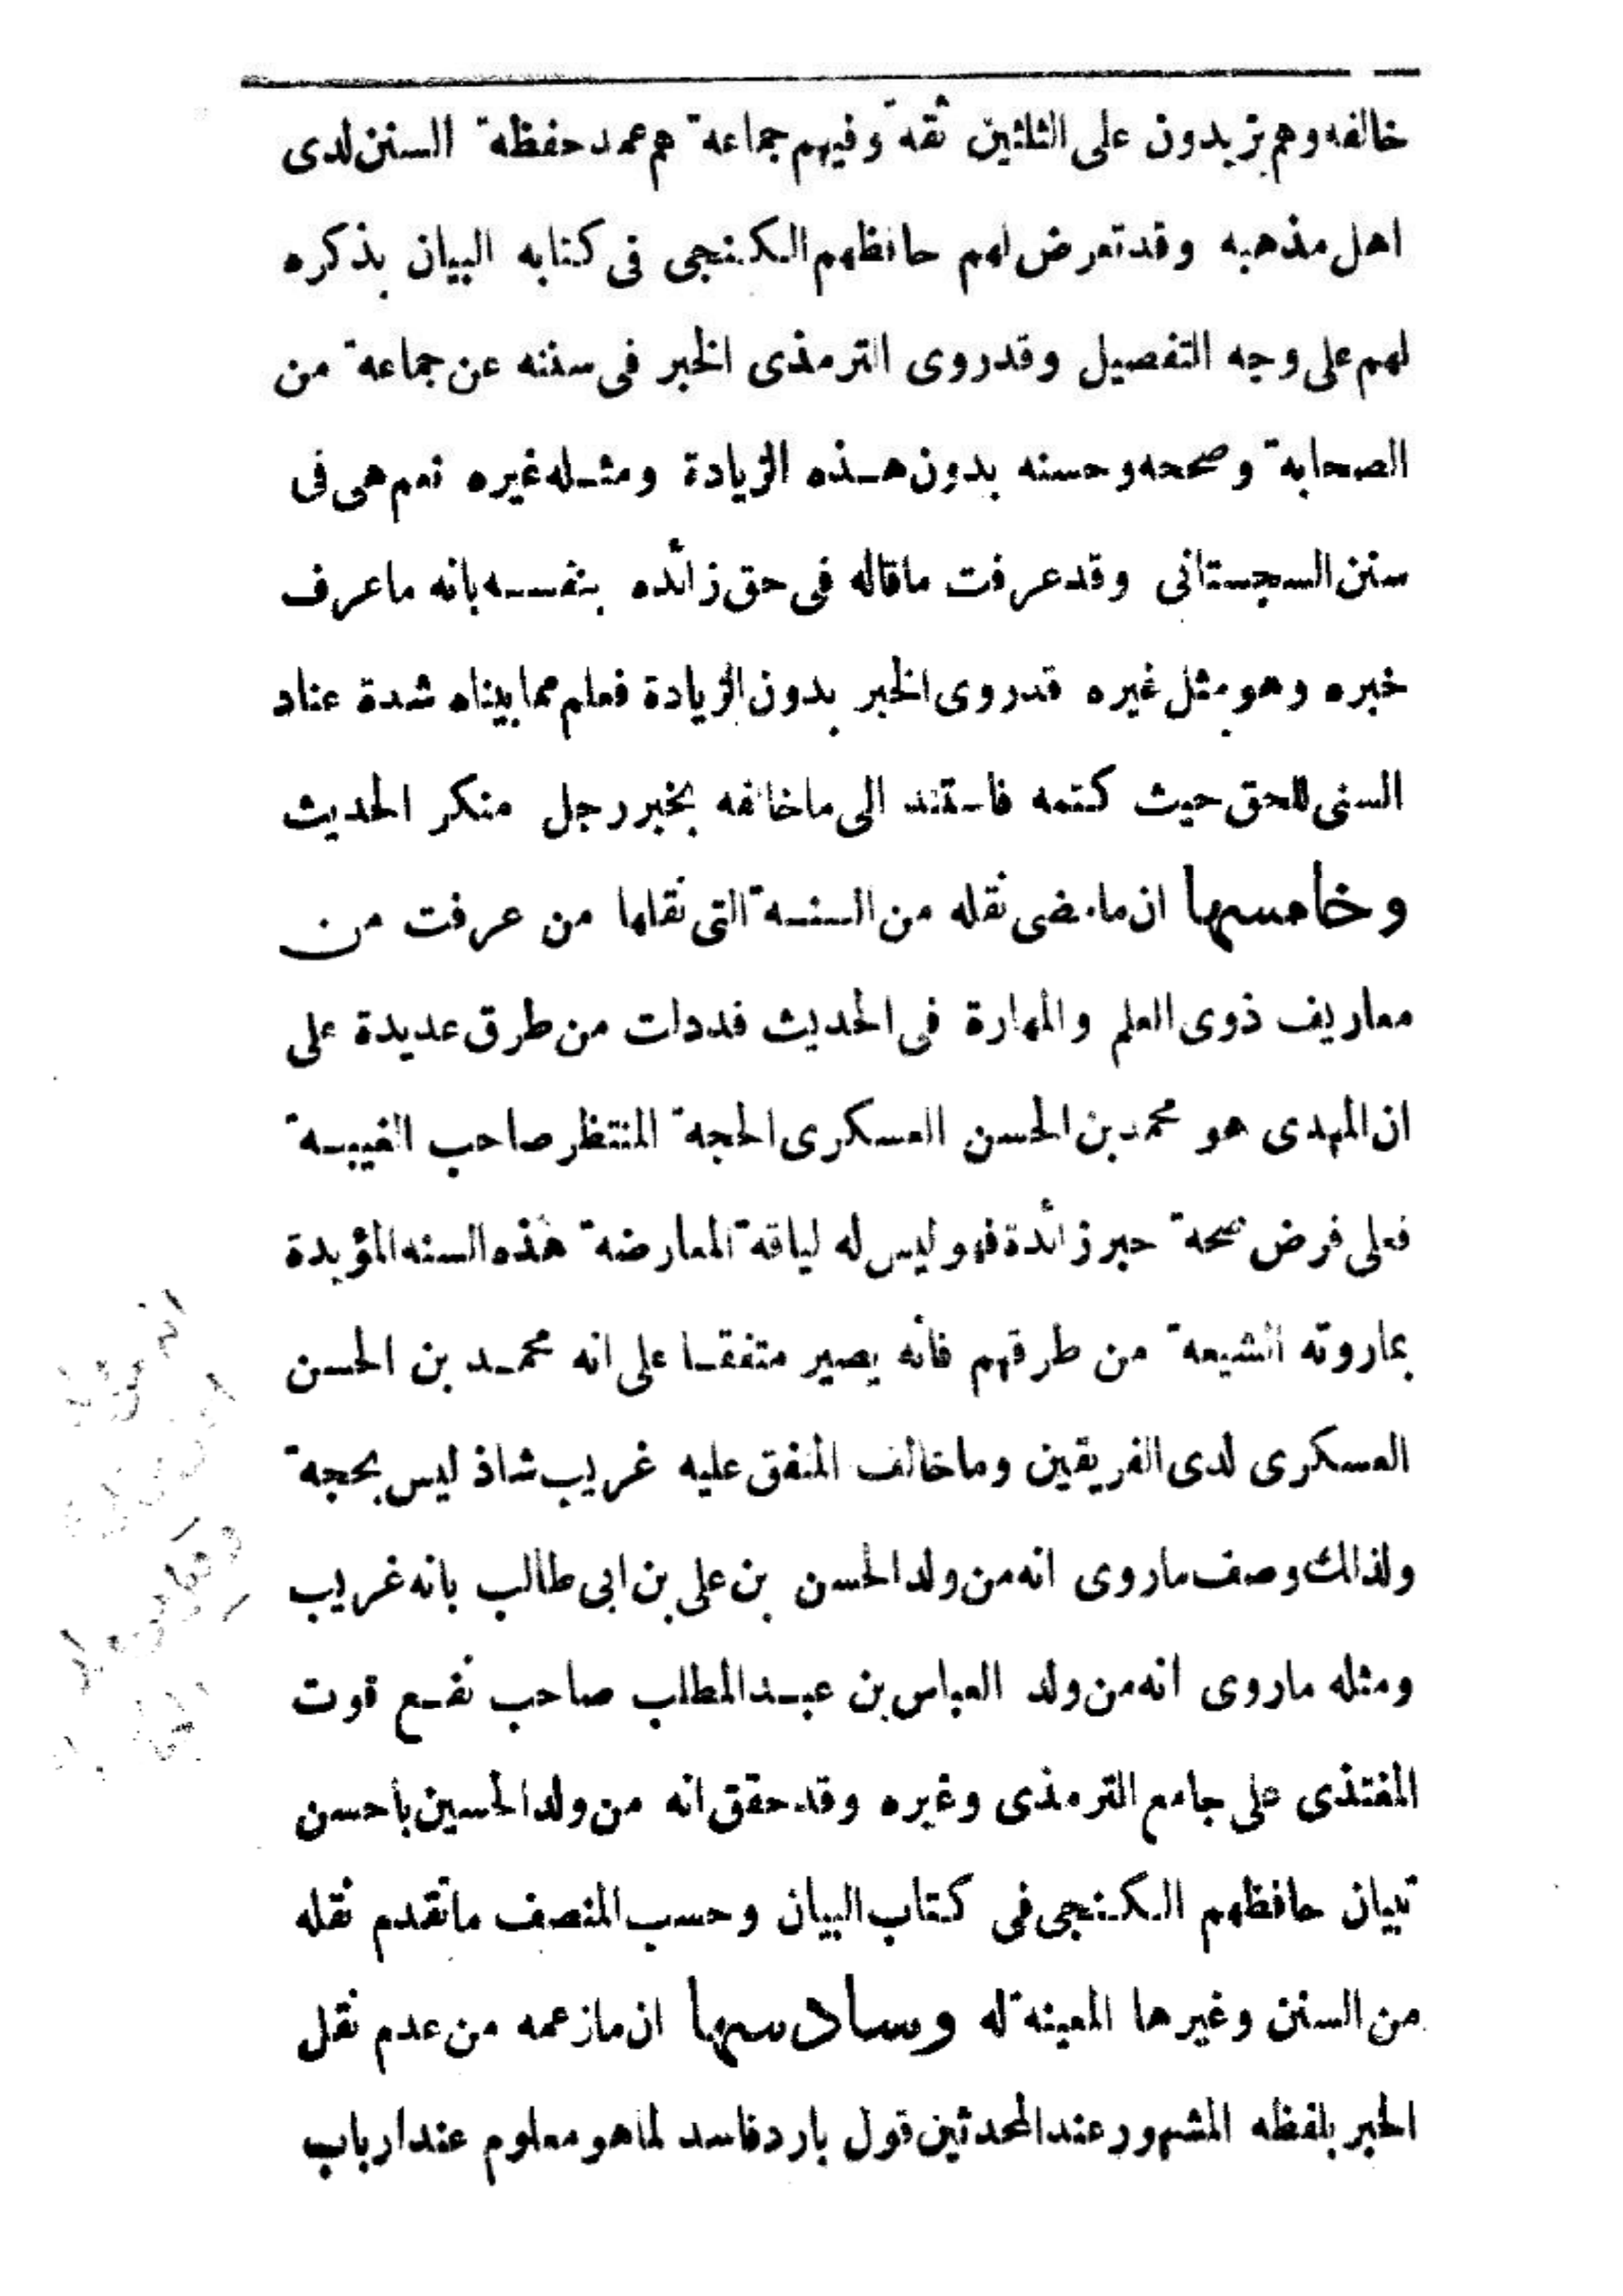 خالفه وهم يزيدون على الثلثين ثقه وفيهم جماعة هم عمد حفظة السنن لدى
اهل مذهبه وقد تعرض لهم حافظهم الكنجى فى كتابه البيان بذكره
لهم على وجه التفصيل وقد روى الترمذى الخبر فى سننه عن جماعة من
الصحابة وصححه وحسنه بدون هذه الزيادة ومثله غيره نعم هى فى
سنن السجستانى وقد عرفت ماقاله فى حق زائده بنفسه بانه ما عرف
خبره وهو مثل غيره قد روى الخبر بدون الزيادة فعلم مما بيناه شدة عناد
السنى للحق حيث كتمه فاستند الى ماخالفه بخبر رجل منكر الحديث
وخامسها ان مامضى نقله من السنة التى نقلها من عرفت من
معاريف ذوى العلم والمهارة فى الحديث فد دات من طرق عديدة على
ان المهدى هو محمد بن الحسن العسكرى الحجة المنتظر صاحب الغيبة
فعلى فرض صحة حبر زائدة فهو ليس له لياقة المعارضة هذه السنه المؤيدة
بماروته الشيعة من طرقهم فأنه يصير متفقا على انه محمد بن الحسن
العسكرى لدى الفريقين وماخالف المتفق عليه غريب شاذ ليس بحجة
ولذالك وصف ماروى انه من ولد الحسن بن على بن ابى طالب بانه غريب
ومثله ماروى انه من ولد العباس بن عبد المطلب صاحب نفع قوت
المغتذى على جامع الترمذى وغيره وقد حقق انه من ولد الحسين بأحسن
تبيان حافظهم الكنجى فى كتاب البيان وحسب المنصف ماتقدم نقله
من السنن وغيرها المعينة له وسادسها ان مازعمه من عدم نقل
الخبر بلفظه المشهور عند المحدثين قول بارد فاسد لماهو معلوم عند ارباب